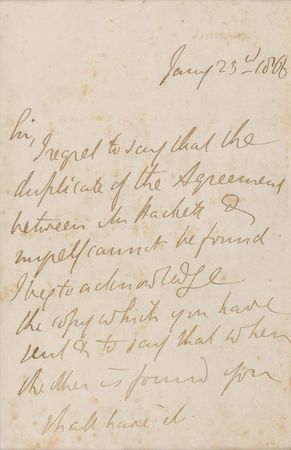 Jany 23rd 1866
Sir,
I regret to say that the
duplicate of the Agreement
between Mr Hackett &
myself cannot be found.
I beg to acknowledge
the copy which you have
sent & to say that when
the other is found you
shall have it.